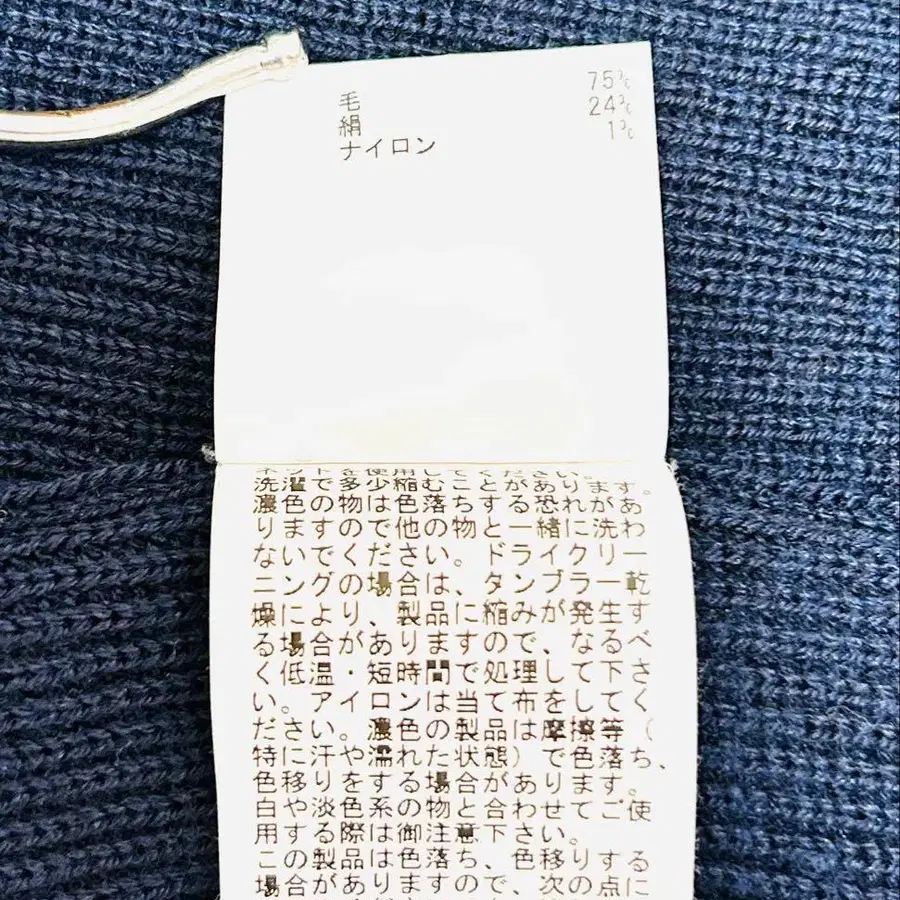 毛 75%
絹 24%
ナイロン 1%
ネットを使用してください。
洗濯で多少縮むことがあります。
濃色の物は色落ちする恐れがあ
りますので他の物と一緒に洗わ
ないでください。ドライクリー
ニングの場合は、タンブラー乾
燥により、製品に縮みが発生す
る場合がありますので、なるべ
く低温・短時間で処理して下さ
い。アイロンは当て布をしてく
ださい。濃色の製品は摩擦等(
特に汗や濡れた状態)で色落ち、
色移りをする場合があります。
白や淡色系の物と合わせてご使
用する際は御注意下さい。
この製品は色落ち、色移りする
場合がありますので、次の点に